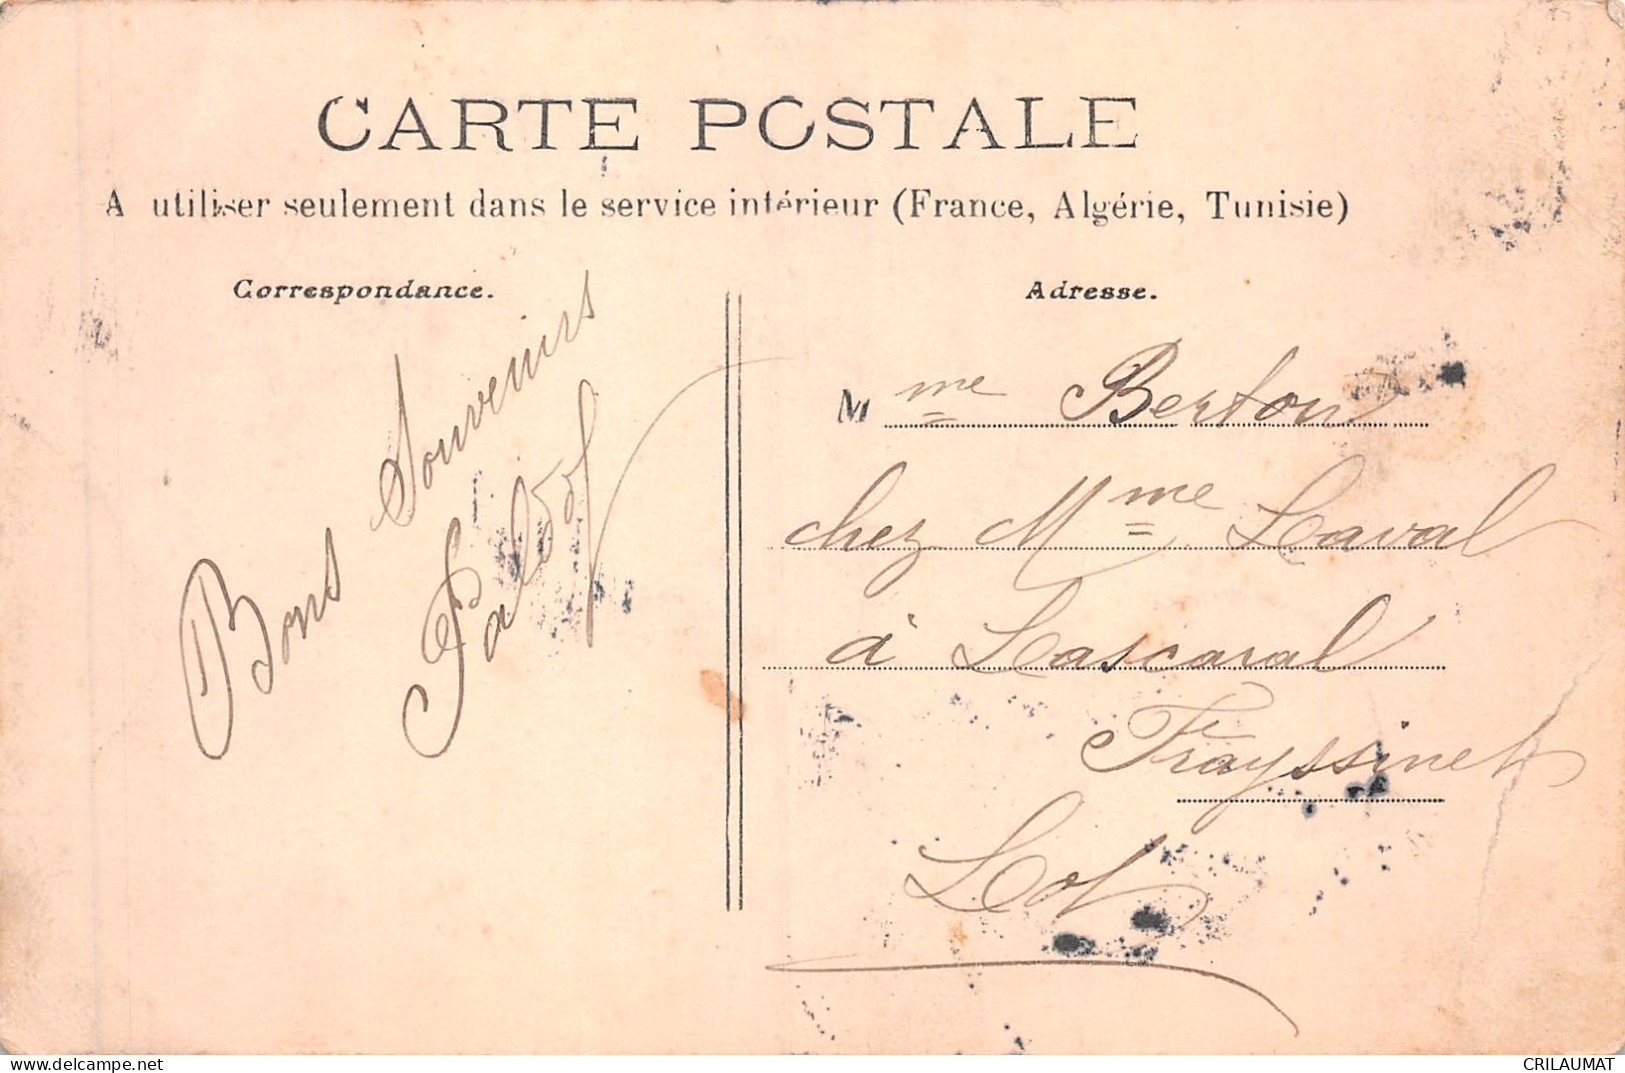 CARTE POSTALE
A utiliser seulement dans le service intérieur (France, Algérie, Tunisie)
Correspondance.
Bons Souvenirs
Adresse.
Mme Berton
chez Mme Laval
à Lascaval
Frayssinet
Lot
delcampe.net
CRILAUMAT